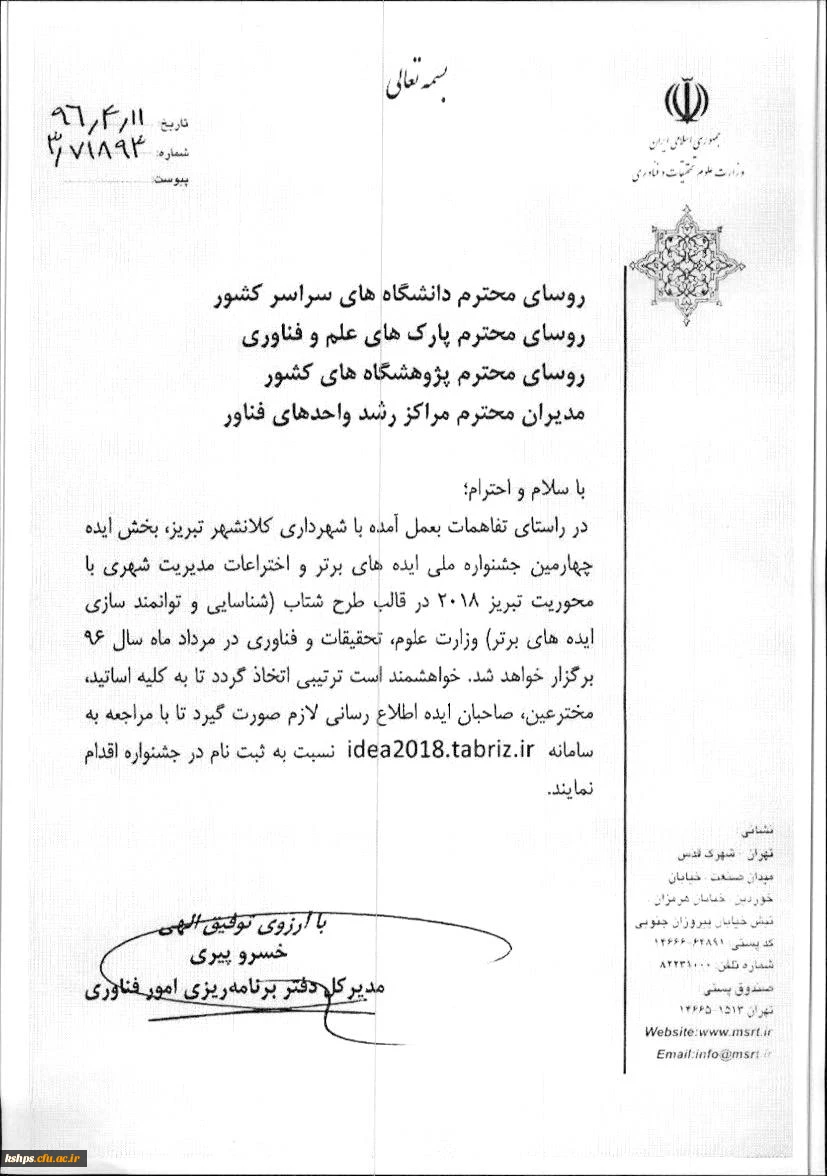 بسمه تعالی
جمهوری اسلامی ایران
وزارت علوم تحقیقات و فناوری
تاریخ: ۹۶٫۴٫۱۱
شماره: ۳٫۷۱۸۹۴
پیوست:
روسای محترم دانشگاه های سراسر کشور
روسای محترم پارک های علم و فناوری
روسای محترم پژوهشگاه های کشور
مدیران محترم مراکز رشد واحدهای فناور
با سلام و احترام؛
در راستای تفاهمات بعمل آمده با شهرداری کلانشهر تبریز، بخش ایده
چهارمین جشنواره ملی ایده های برتر و اختراعات مدیریت شهری با
محوریت تبریز ۲۰۱۸ در قالب طرح شتاب (شناسایی و توانمند سازی
ایده های برتر) وزارت علوم، تحقیقات و فناوری در مرداد ماه سال ۹۶
برگزار خواهد شد. خواهشمند است ترتیبی اتخاذ گردد تا به کلیه اساتید،
مخترعین، صاحبان ایده اطلاع رسانی لازم صورت گیرد تا با مراجعه به
سامانه idea2018.tabriz.ir نسبت به ثبت نام در جشنواره اقدام
نمایند.
با آرزوی توفیق الهی
خسرو پیری
مدیرکل دفتر برنامه‌ریزی امور فناوری
نشانی:
تهران - شهرک قدس
میدان صنعت - خیابان
خوردین - خیابان هرمزان
نبش خیابان پیروزان جنوبی
کد پستی: ۶۴۸۹۱-۱۴۶۶۶
شماره تلفن: ۸۲۲۳۱۰۰۰
صندوق پستی:
تهران ۱۵۱۳-۱۴۶۶۵
Website:www.msrt.ir
Email:info@msrt.ir
kshps.cfu.ac.ir